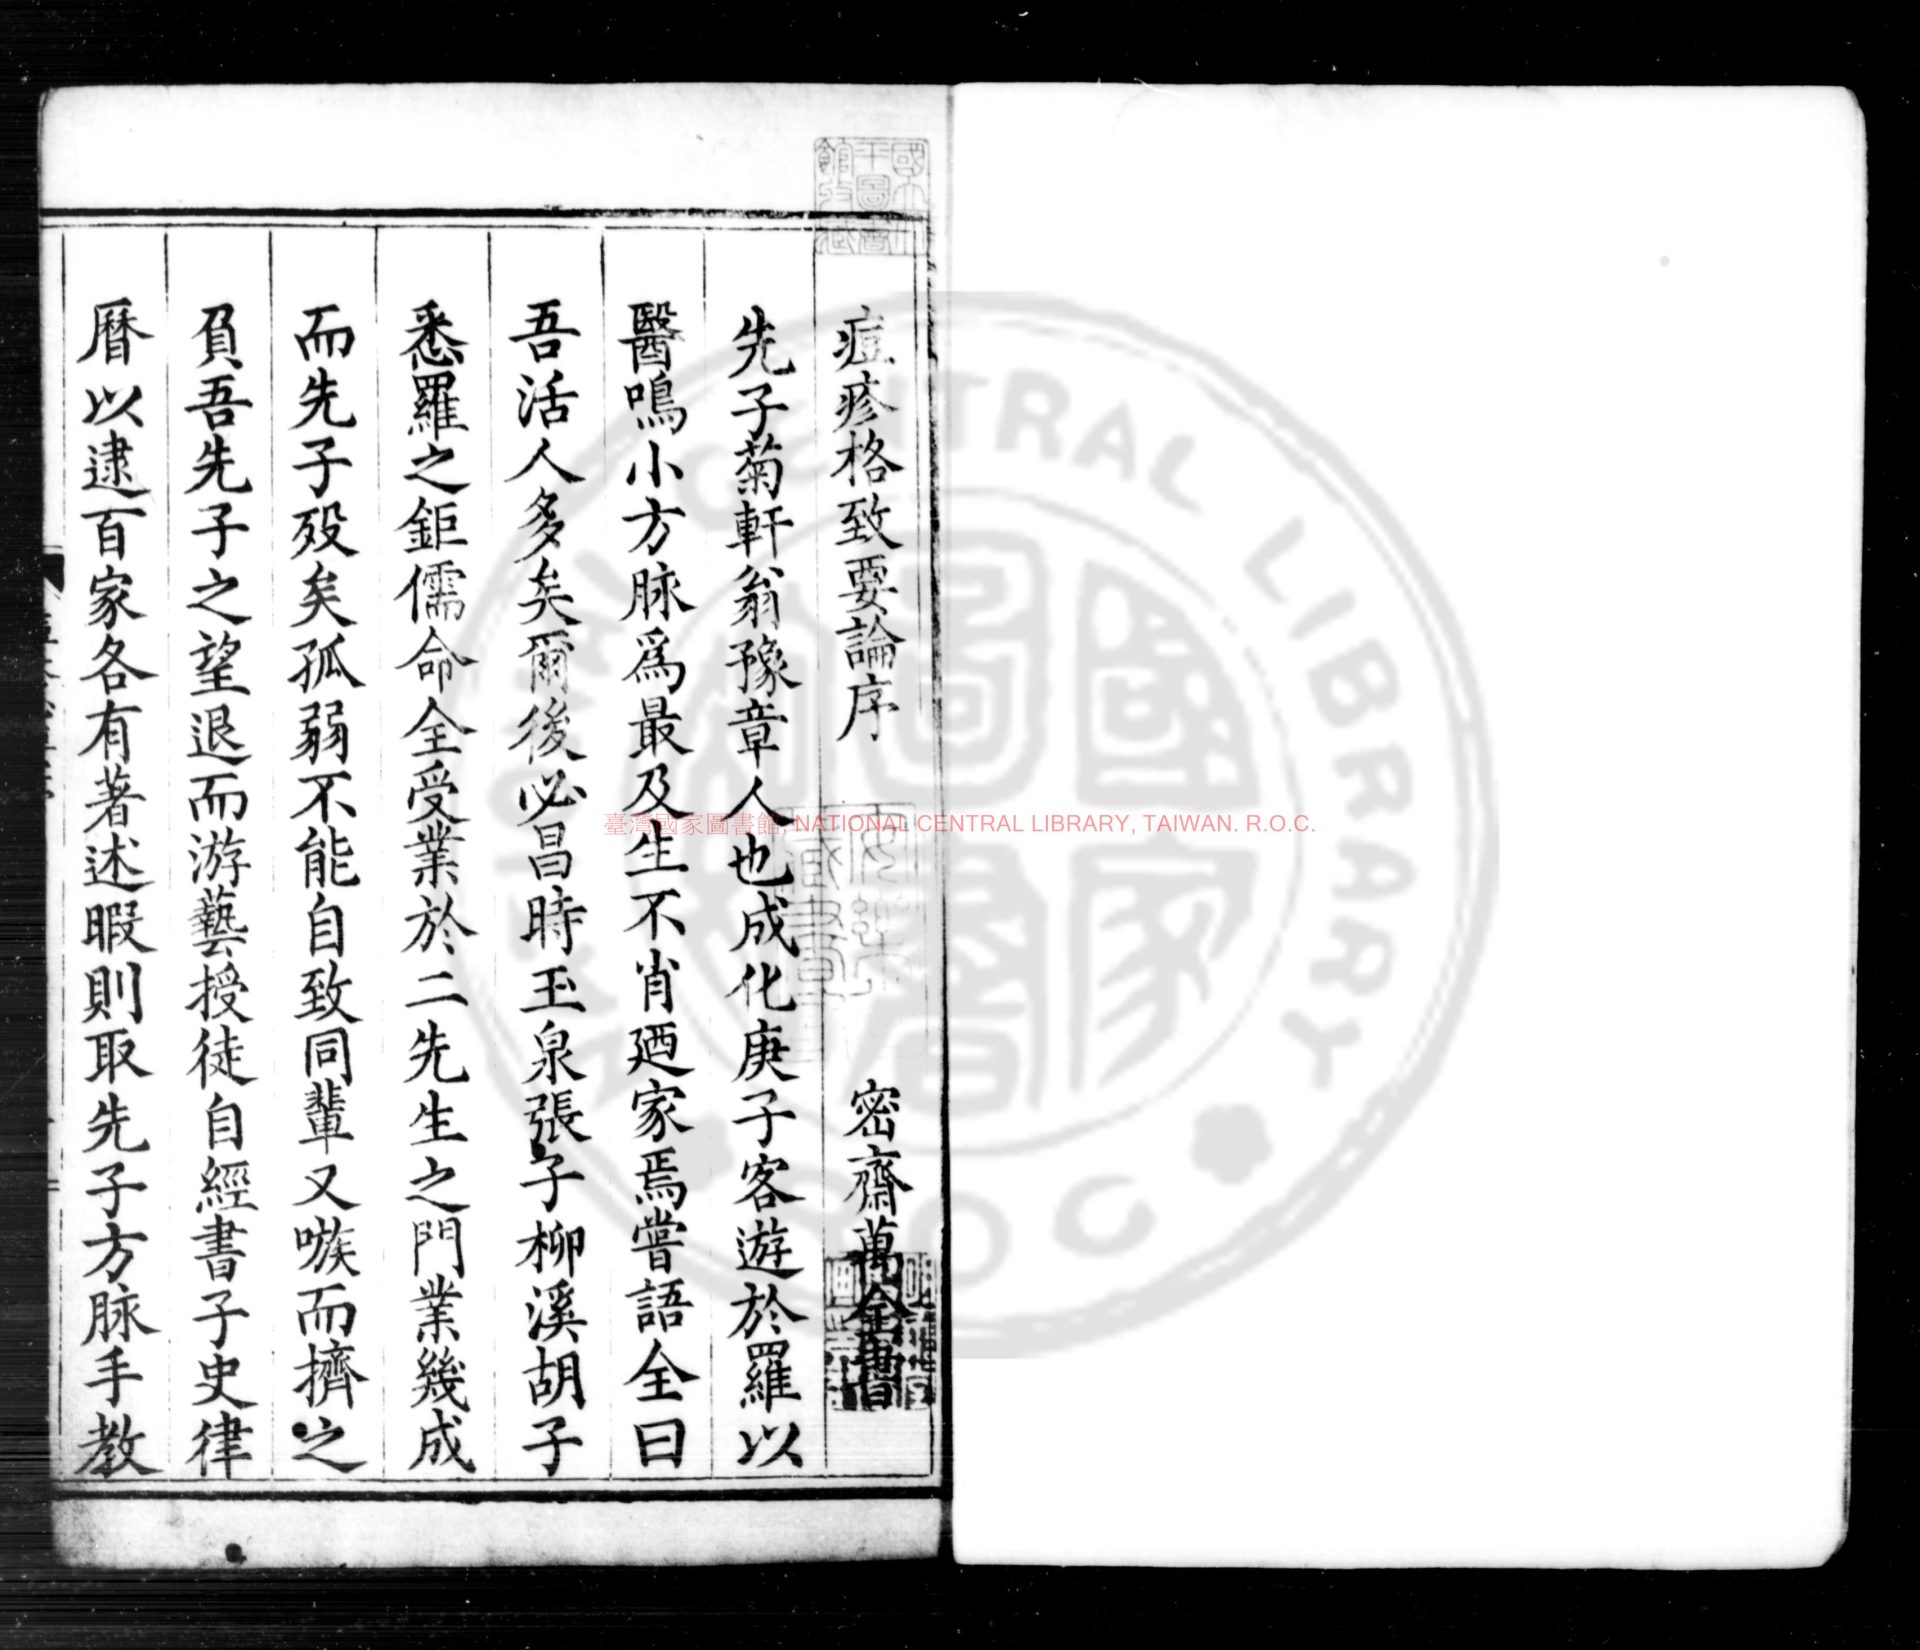 痘疹格致要論序 密齋萬全書
先子菊軒翁豫章人也成化庚子客遊於羅以
醫鳴小方脉爲最及生不肖廼家焉嘗語全曰
吾活人多矣爾後必昌時玉泉張子柳溪胡子
悉羅之鉅儒命全受業於二先生之門業幾成
而先子歿矣孤弱不能自致同輩又嫉而擠之
負吾先子之望退而游藝授徒自經書子史律
曆以逮百家各有著述暇則取先子方脉手教
臺灣國家圖書館, NATIONAL CENTRAL LIBRARY, TAIWAN. R.O.C.
NATIONAL CENTRAL LIBRARY
R.O.C.
國家圖書館